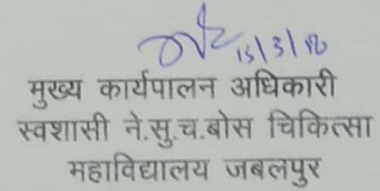 13/3/18
मुख्य कार्यपालन अधिकारी
स्वशासी ने.सु.च.बोस चिकित्सा
महाविद्यालय जबलपुर